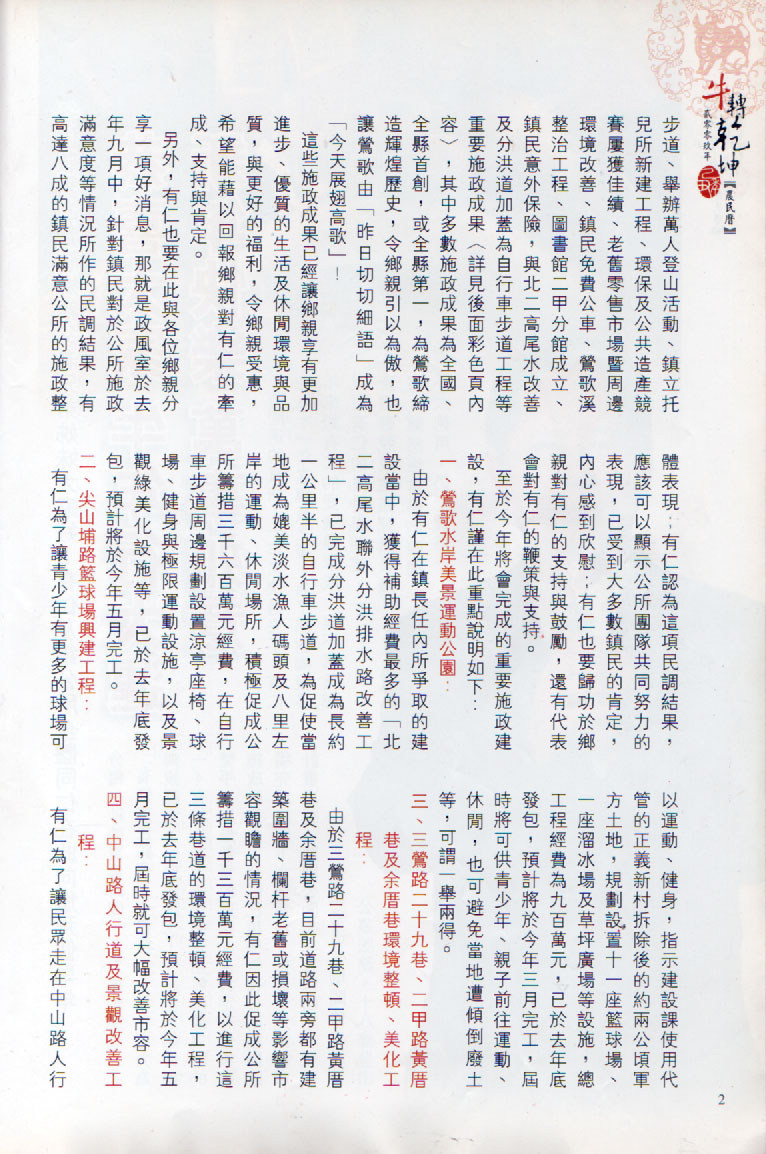 牛轉乾坤『農民曆』
貳零零玖年
步道、舉辦萬人登山活動、鎮立托
兒所新建工程、環保及公共造產競
賽屢獲佳績、老舊零售市場暨周邊
環境改善、鎮民免費公車、鶯歌溪
整治工程、圖書館二甲分館成立、
鎮民意外保險,與北二高尾水改善
及分洪道加蓋為自行車步道工程等
重要施政成果〈詳見後面彩色頁內
容〉,其中多數施政成果為全國、
全縣首創,或全縣第一,為鶯歌締
造輝煌歷史,令鄉親引以為傲,也
讓鶯歌由「昨日切切細語」成為
「今天展翅高歌」!
這些施政成果已經讓鄉親享有更加
進步、優質的生活及休閒環境與品
質,與更好的福利,令鄉親受惠,
希望能藉以回報鄉親對有仁的牽
成、支持與肯定。
另外,有仁也要在此與各位鄉親分
享一項好消息,那就是政風室於去
年九月中,針對鎮民對於公所施政
滿意度等情況所作的民調結果,有
高達八成的鎮民滿意公所的施政整
體表現;有仁認為這項民調結果,
應該可以顯示公所團隊共同努力的
表現,已受到大多數鎮民的肯定,
內心感到欣慰;有仁也要歸功於鄉
親對有仁的支持與鼓勵,還有代表
會對有仁的鞭策與支持。
至於今年將會完成的重要施政建
設,有仁謹在此重點說明如下:
一、鶯歌水岸美景運動公園:
由於有仁在鎮長任內所爭取的建
設當中,獲得補助經費最多的「北
二高尾水聯外分洪排水路改善工
程」,已完成分洪道加蓋成為長約
一公里半的自行車步道,為促使當
地成為媲美淡水漁人碼頭及八里左
岸的運動、休閒場所,積極促成公
所籌措三千六百萬元經費,在自行
車步道周邊規劃設置涼亭座椅、球
場、健身與極限運動設施,以及景
觀綠美化設施等,已於去年底發
包,預計將於今年五月完工。
二、尖山埔路籃球場興建工程:
有仁為了讓青少年有更多的球場可
以運動、健身,指示建設課使用代
管的正義新村拆除後的約兩公頃軍
方土地,規劃設置十一座籃球場、
一座溜冰場及草坪廣場等設施,總
工程經費為九百萬元,已於去年底
發包,預計將於今年三月完工,屆
時將可供青少年、親子前往運動、
休閒,也可避免當地遭傾倒廢土
等,可謂一舉兩得。
三、三鶯路二十九巷、二甲路黃厝
巷及余厝巷環境整頓、美化工
程:
由於三鶯路二十九巷、二甲路黃厝
巷及余厝巷,目前道路兩旁都有建
築圍牆、欄杆老舊或損壞等影響市
容觀瞻的情況,有仁因此促成公所
籌措一千三百萬元經費,以進行這
三條巷道的環境整頓、美化工程,
已於去年底發包,預計將於今年五
月完工,屆時就可大幅改善市容。
四、中山路人行道及景觀改善工
程:
有仁為了讓民眾走在中山路人行
2